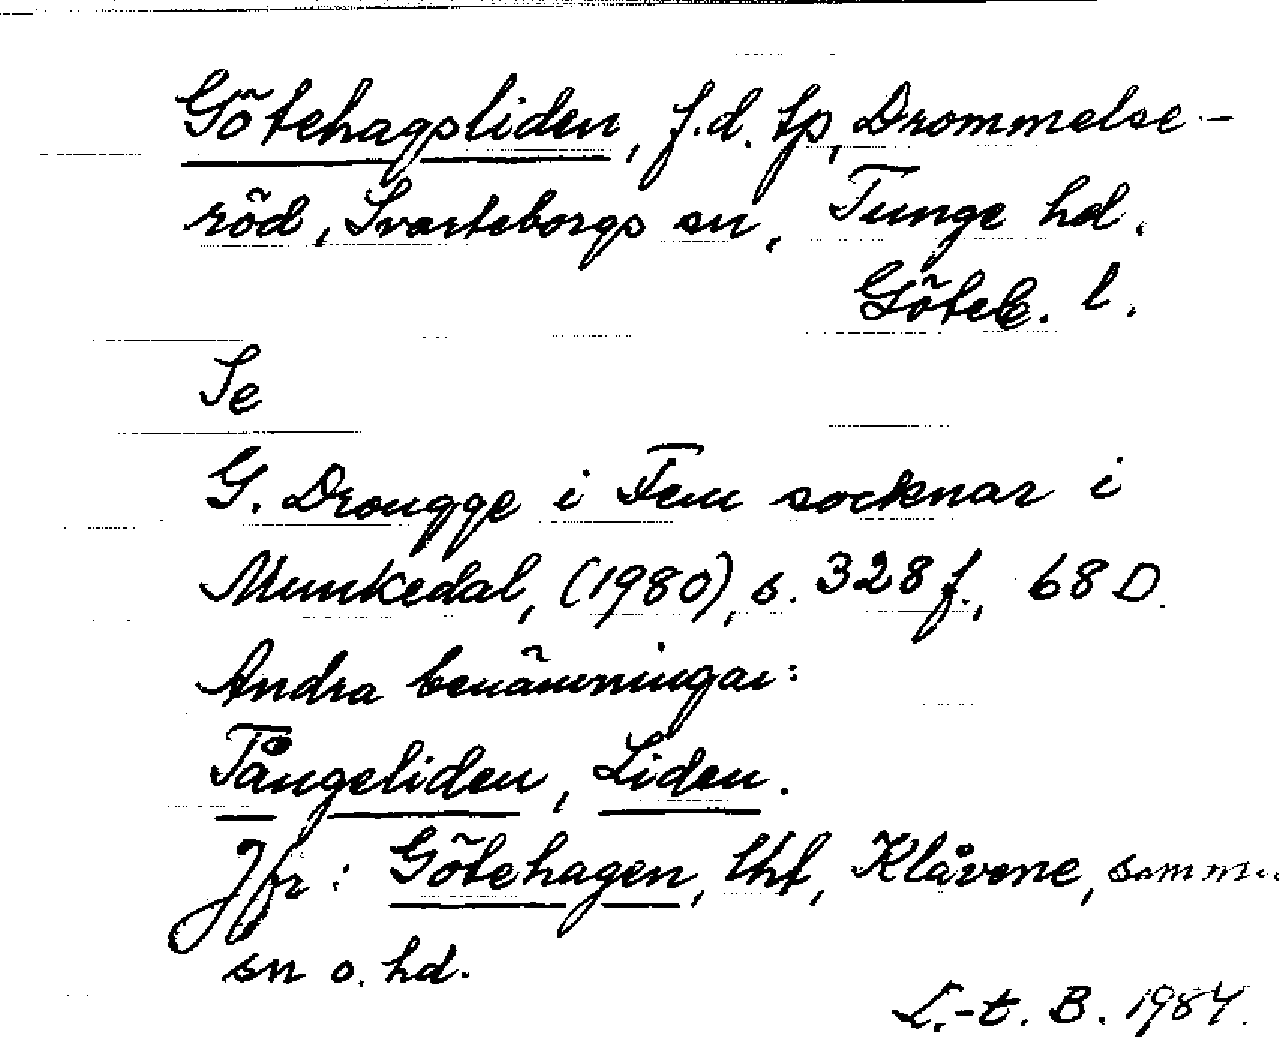 Götehagsliden, f.d. tp, Drommelse-
röd, Svarteborgs sn, Tunge hd.
Göteb. l.
Se
G. Drougge i Fem socknar i
Munkedal, (1980), s. 328 f., 68 D.
Andra benämningar:
Tångeliden, Liden.
Jfr: Götehagen, lht, Klåvene, samma
sn o. hd.
L.-t. B. 1984.